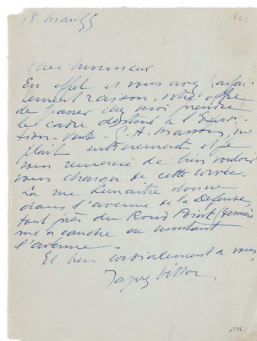 18 mars 55
Cher Monsieur
En effet et vous avez parfai-
tement raison. Votre offre
de passer chez moi prendre
le cadre destiné à l'Exposi-
tion G. A. Masson, me
plait entièrement et je
vous remercie de bien vouloir
vous charger de cette corvée.
La rue Lemaître donne
dans l'avenue de la Défense
tout près du Rond Point
à gauche en montant
l'avenue.
Et bien cordialement à vous
Jacques Villon